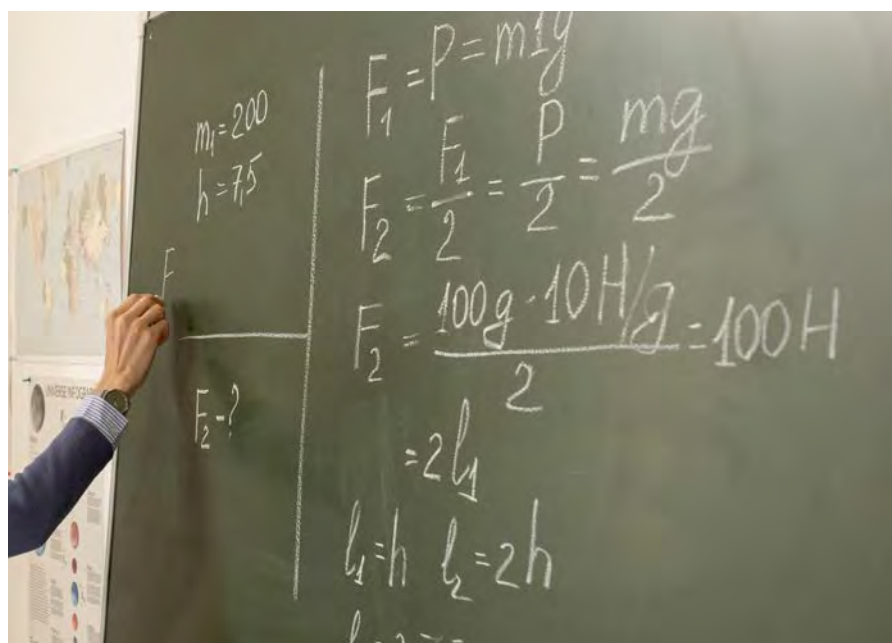 m₁=200
h=7,5
F
F₂-?
F₁=P=m1g
F₂=F₁/2=P/2=mg/2
F₂=100g·10H/g/2=100H
=2l₁
l₁=h l₂=2h
UNIVERSE INFOGRAPH